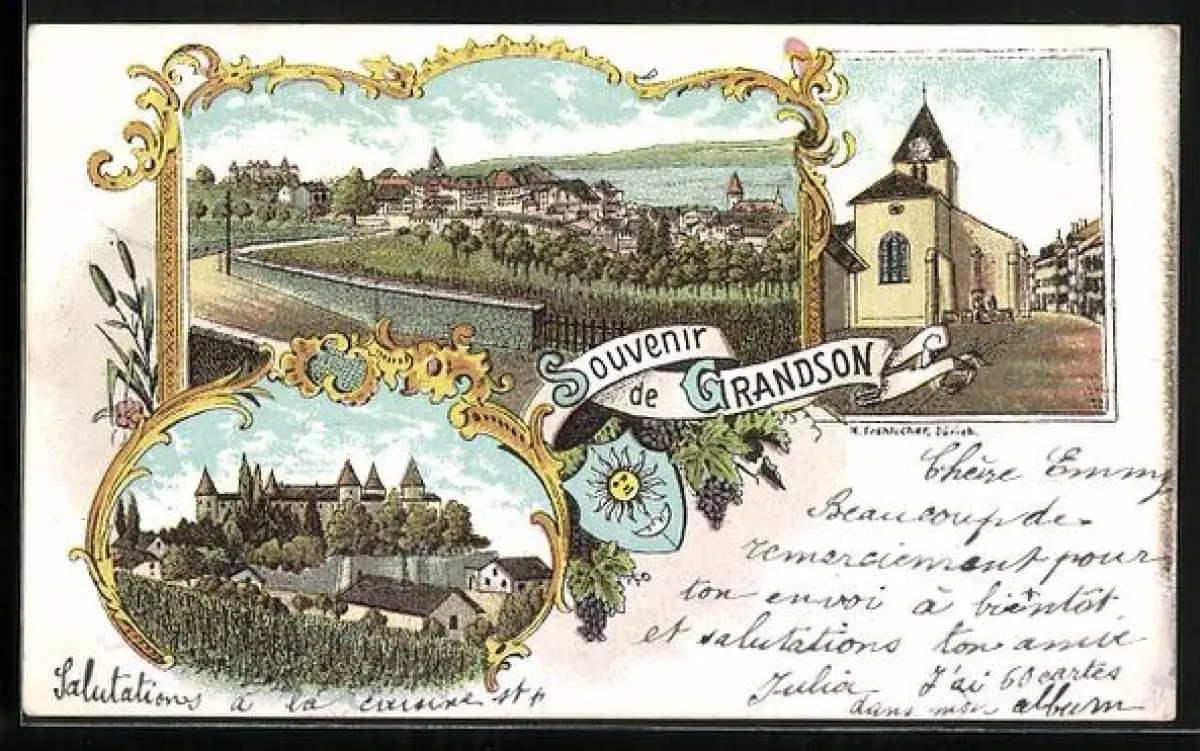 Souvenir
de GRANDSON
Zürich.
Chère Emmy
Beaucoup de
remerciement pour
ton envoi à bientôt
et salutations ton amie
Julia J'ai 60 cartes
dans mon album
Salutations à la